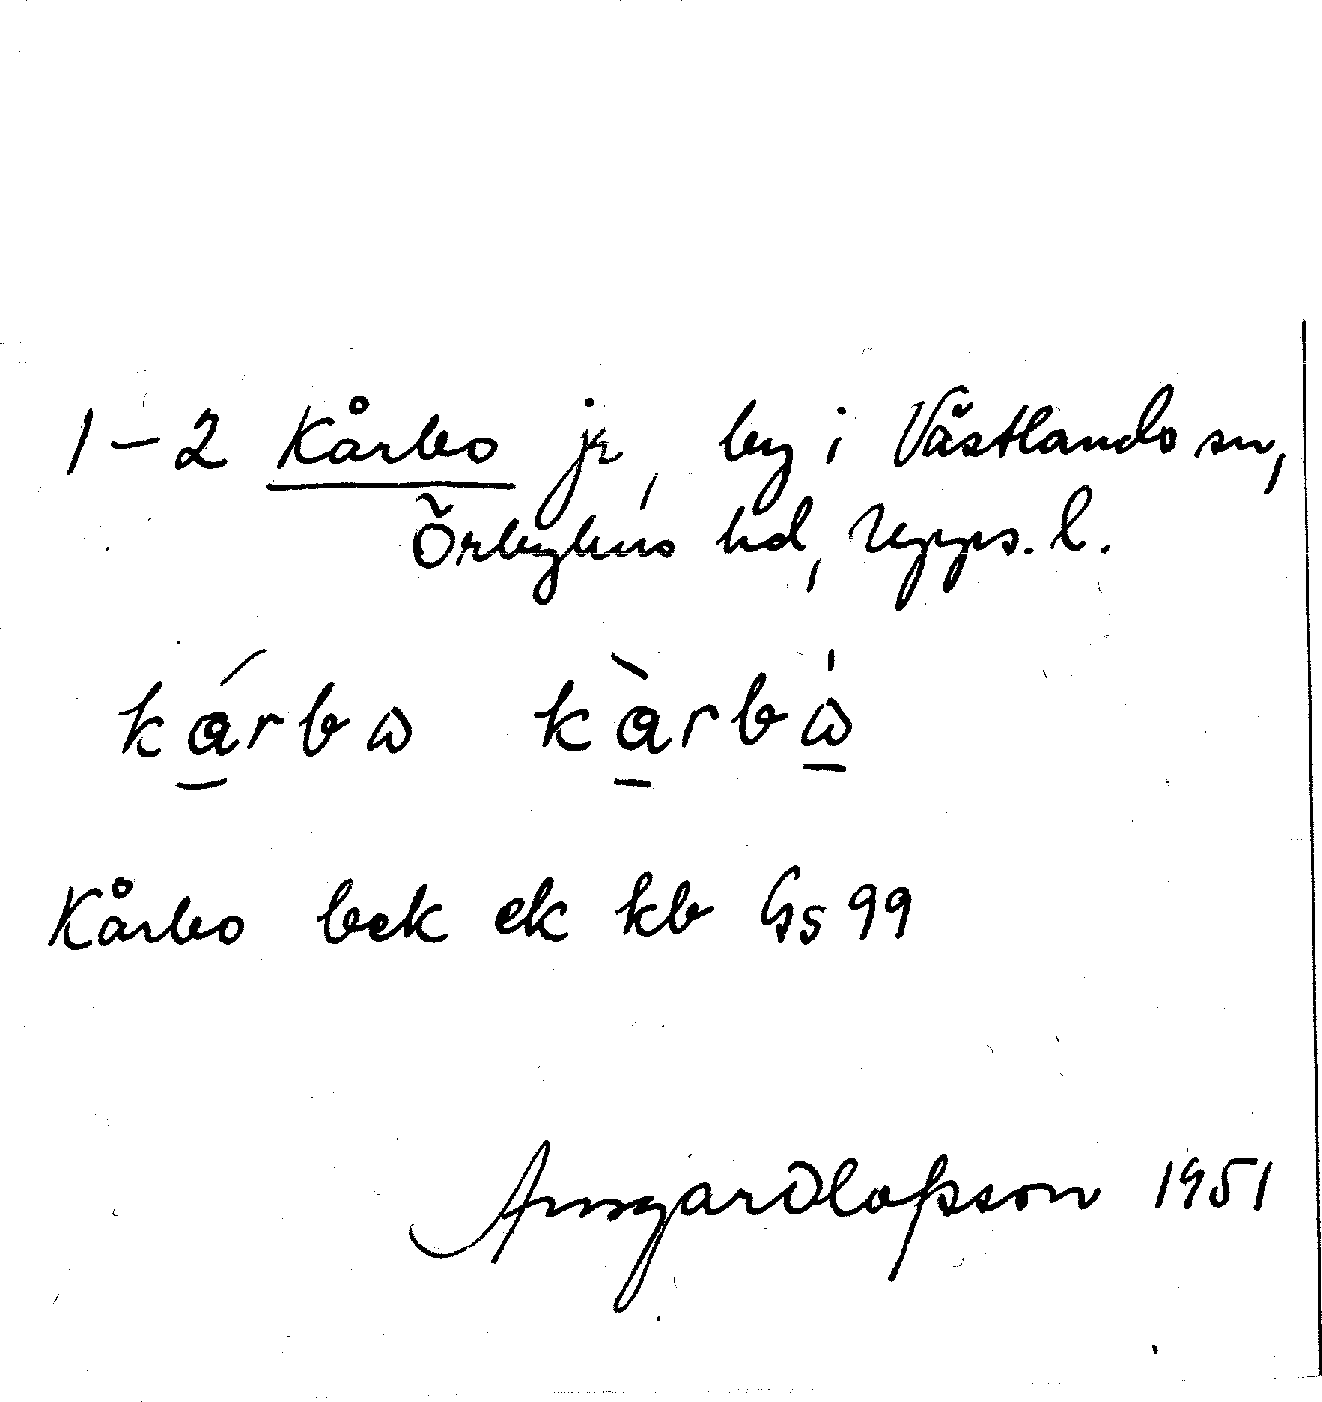 1–2 Kårbo jr, by i Västlands sn,
Örbyhus hd, Upps. l.
kárbω kàrbὼ
Kårbo bek ek kb Gs 99
Ansgar Olofsson 1951